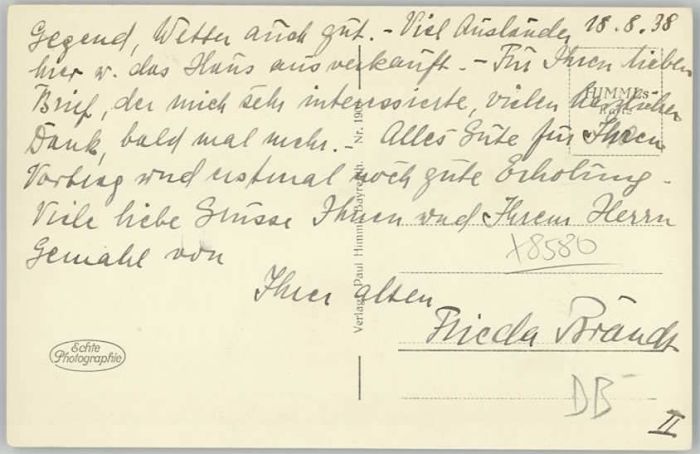 18.8.38
Gegend, Wetter auch gut. - Viel Ausländer
hier u. das Haus ausverkauft. - Für Ihren lieben
Brief, der mich sehr interessierte, vielen herzlichen
Dank, bald mal mehr. - Alles Gute für Ihren
Vortrag und erstmal noch gute Erholung. -
Viele liebe Grüsse Ihnen und Ihrem Herrn
Gemahl von
Ihrer alten
Frieda Brandt
HIMMEL-
Verlag Paul Himmel, Bayreuth. Nr.
Echte
Photographie
+8580
DB
II